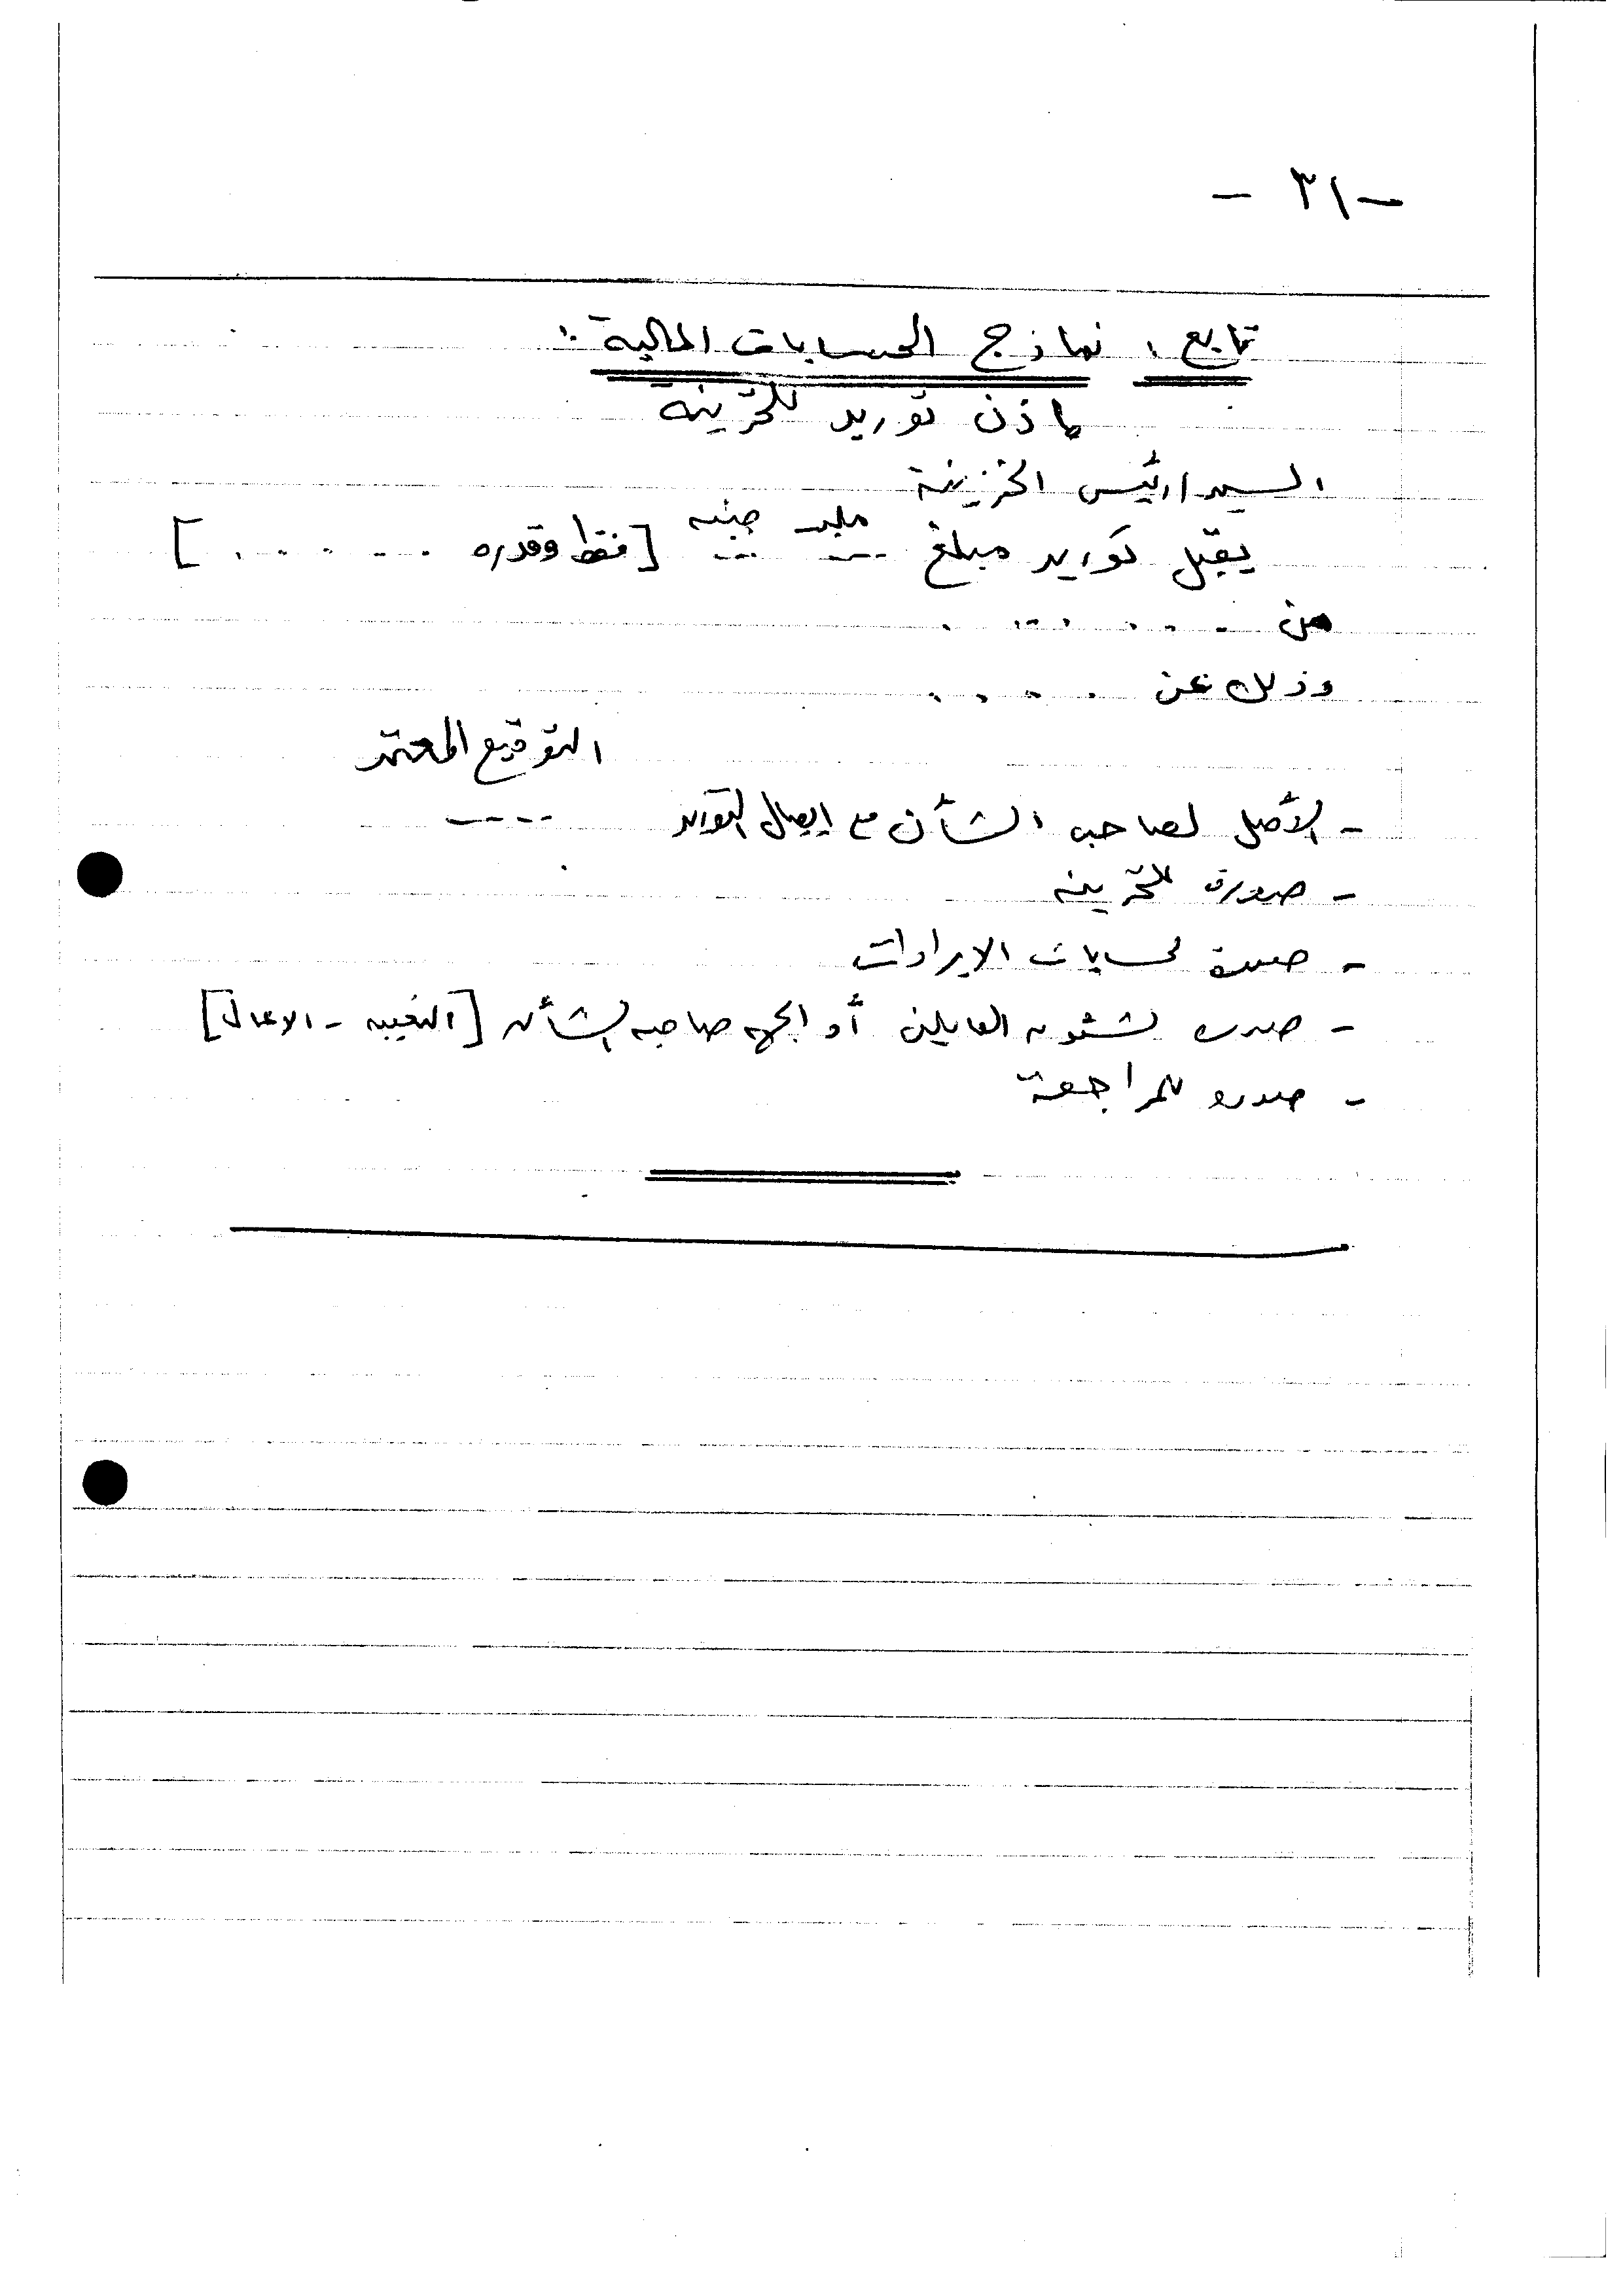 - ٣١ -
تابع : نماذج الحسابات المالية :
إذن توريد للخزينه
السيد / رئيس الخزينة
مليم جنيه
يقبل توريد مبلغ ---- ---- [ فقط وقدره . . . . . . ]
من . . . . . . .
وذلك عن . . . . .
التوقيع المعتمد
- الأصل لصاحب الشأن مع ايصال التوريد ----
- صورة للخزينه
- صورة لحسابات الايرادات
- صورة لشئون العاملين أو الجهه صاحبه الشأن [ - الاعمال ]
- صورة للمراجعة